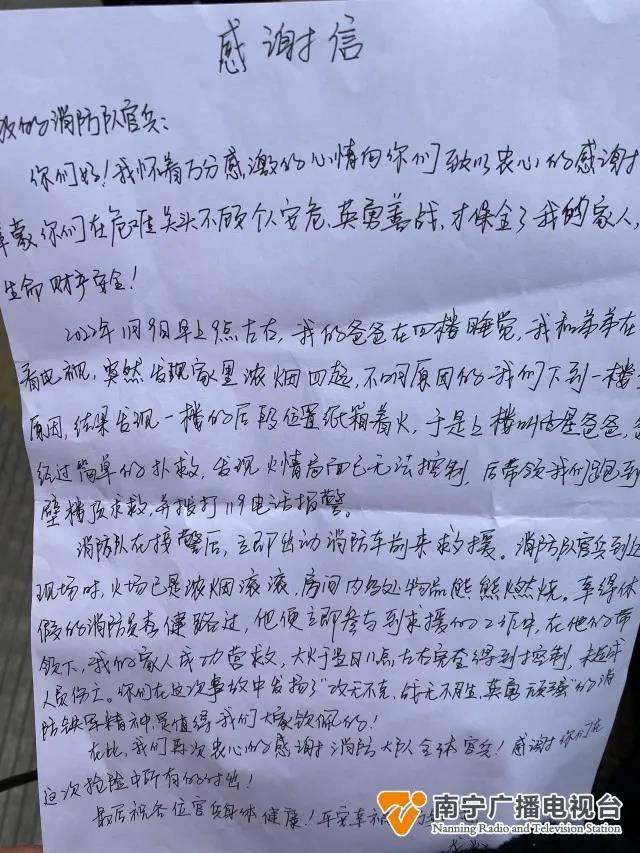 感谢信
敬的消防队官兵:
你们好!我怀着万分感激的心情向你们致以衷心的感谢
幸蒙你们在危难关头不顾个人安危、英勇善战,才保全了我的家人,
生命财产安全!
2022年1月9日早上9点左右,我的爸爸在四楼睡觉,我和弟弟在
看电视,突然发现家里浓烟四起,不明原因的我们下到一楼
原因,结果发现一楼的后段位置纸箱着火,于是上楼叫醒爸爸,
经过简单的扑救,发现火情局面已无法控制,后带领我们跑到
壁楼顶求救,并拨打119电话报警。
消防队在接警后,立即出动消防车前来救援。消防队官兵到
现场时,火场已是浓烟滚滚,房间内多处物品熊熊燃烧。幸得休
假的消防员李健路过,他便立即参与到救援的工作中,在他的带
领下,我的家人成功营救,大火于当日11点左右完全得到控制,未造成
人员伤亡。你们在这次事故中发扬了“攻无不克,战无不胜,英勇顽强”的消
防铁军精神,是值得我们大家钦佩的!
在此,我们再次衷心的感谢消防大队全体官兵!感谢你们在
这次抢险中所有的付出!
最后祝各位官兵身体健康!平安幸福
南宁广播电视台
Nanning Radio and Television Station